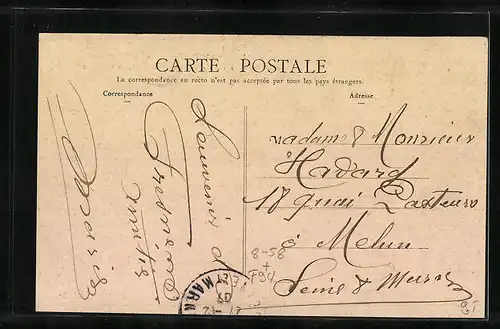 CARTE POSTALE
La correspondance au recto n'est pas acceptée par tous les pays étrangers.
Correspondance
Adresse
Souvenir d
Amitié
Madame & Monsieur
Havard
18 quai Pasteur
à Melun
Seine & Marne
8-58
+
F94
MARN